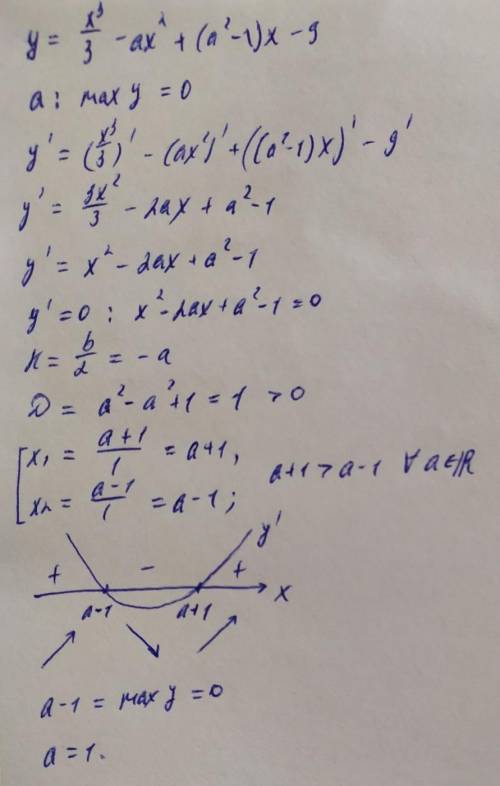 y = x³/3 - ax² + (a²-1)x - 9
a: max y = 0
y' = (x³/3)' - (ax²)' + ((a²-1)x)' - 9'
y' = 3x²/3 - 2ax + a²-1
y' = x² - 2ax + a² - 1
y' = 0 : x² - 2ax + a² - 1 = 0
K = b/2 = -a
D = a² - a² + 1 = 1 > 0
[ x₁ = (a+1)/1 = a+1,
x₂ = (a-1)/1 = a-1; a+1 > a-1 ∀ a∈ℝ
y'
+ - + x
a-1 a+1
a-1 = max y = 0
a = 1.